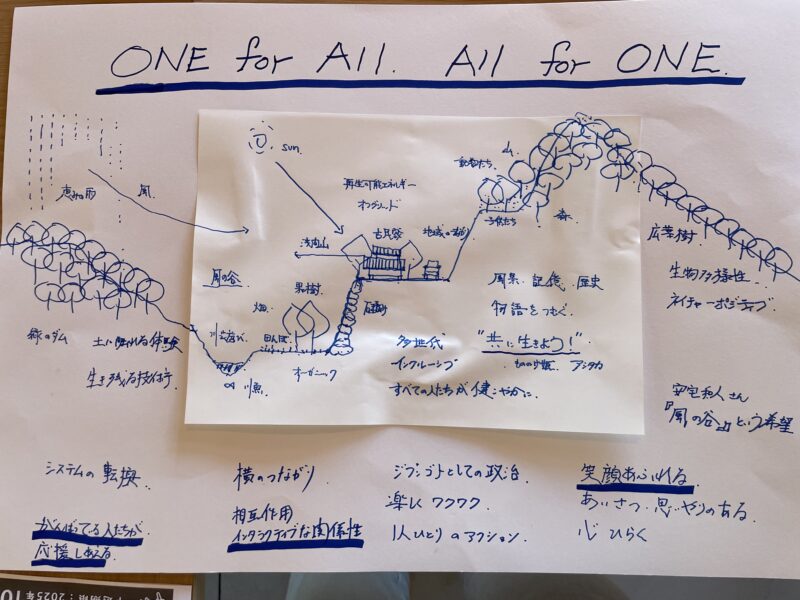 ONE for All. All for ONE.
sun
恵みの雨
風
再生可能エネルギー
オフグリッド
動物たち
山
浅間山
古民家
子供たち
森
広葉樹
生物多様性
ネイチャーポジティブ
風の谷
果樹
畑
石積み
風景、記憶、歴史
物語をつむぐ
緑のダム
土に触れる体験
生き残る技術
川遊び
田んぼ
オーガニック
川魚
多世代
インクルーシブ
すべての人たちが健やかに
"共に生きよう!"
もののけ姫 アシタカ
安宅和人さん
『風の谷』という希望
システムの転換
がんばってる人たちが
応援しあえる
横のつながり
相互作用
インタラクティブな関係性
ジブンゴトとしての政治
楽しく ワクワク
1人ひとりのアクション
笑顔あふれる
あいさつ、思いやりのある
心 ひらく